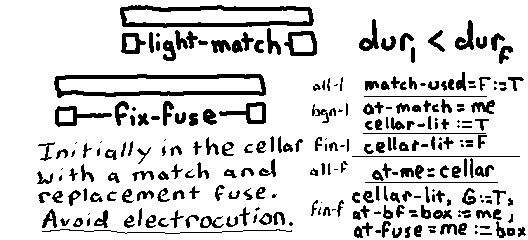 light-match
dur_l < dur_f
fix-fuse
Initially in the cellar
with a match and
replacement fuse.
Avoid electrocution.
all-l match-used=F:=T
bgn-l at-match=me
cellar-lit:=T
fin-l cellar-lit:=F
all-f at-me=cellar
fin-f cellar-lit, G:=T,
at-bf=box:=me,
at-fuse=me:=box